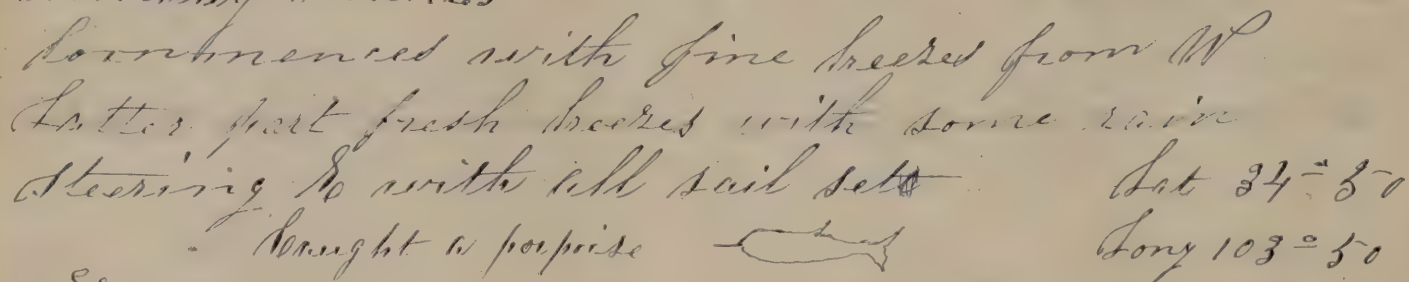 Commences with fine breezes from W
Latter part fresh breezes with some rain
Steering E with all sail set Lat 34°-50
Caught a porpoise Long 103°-50